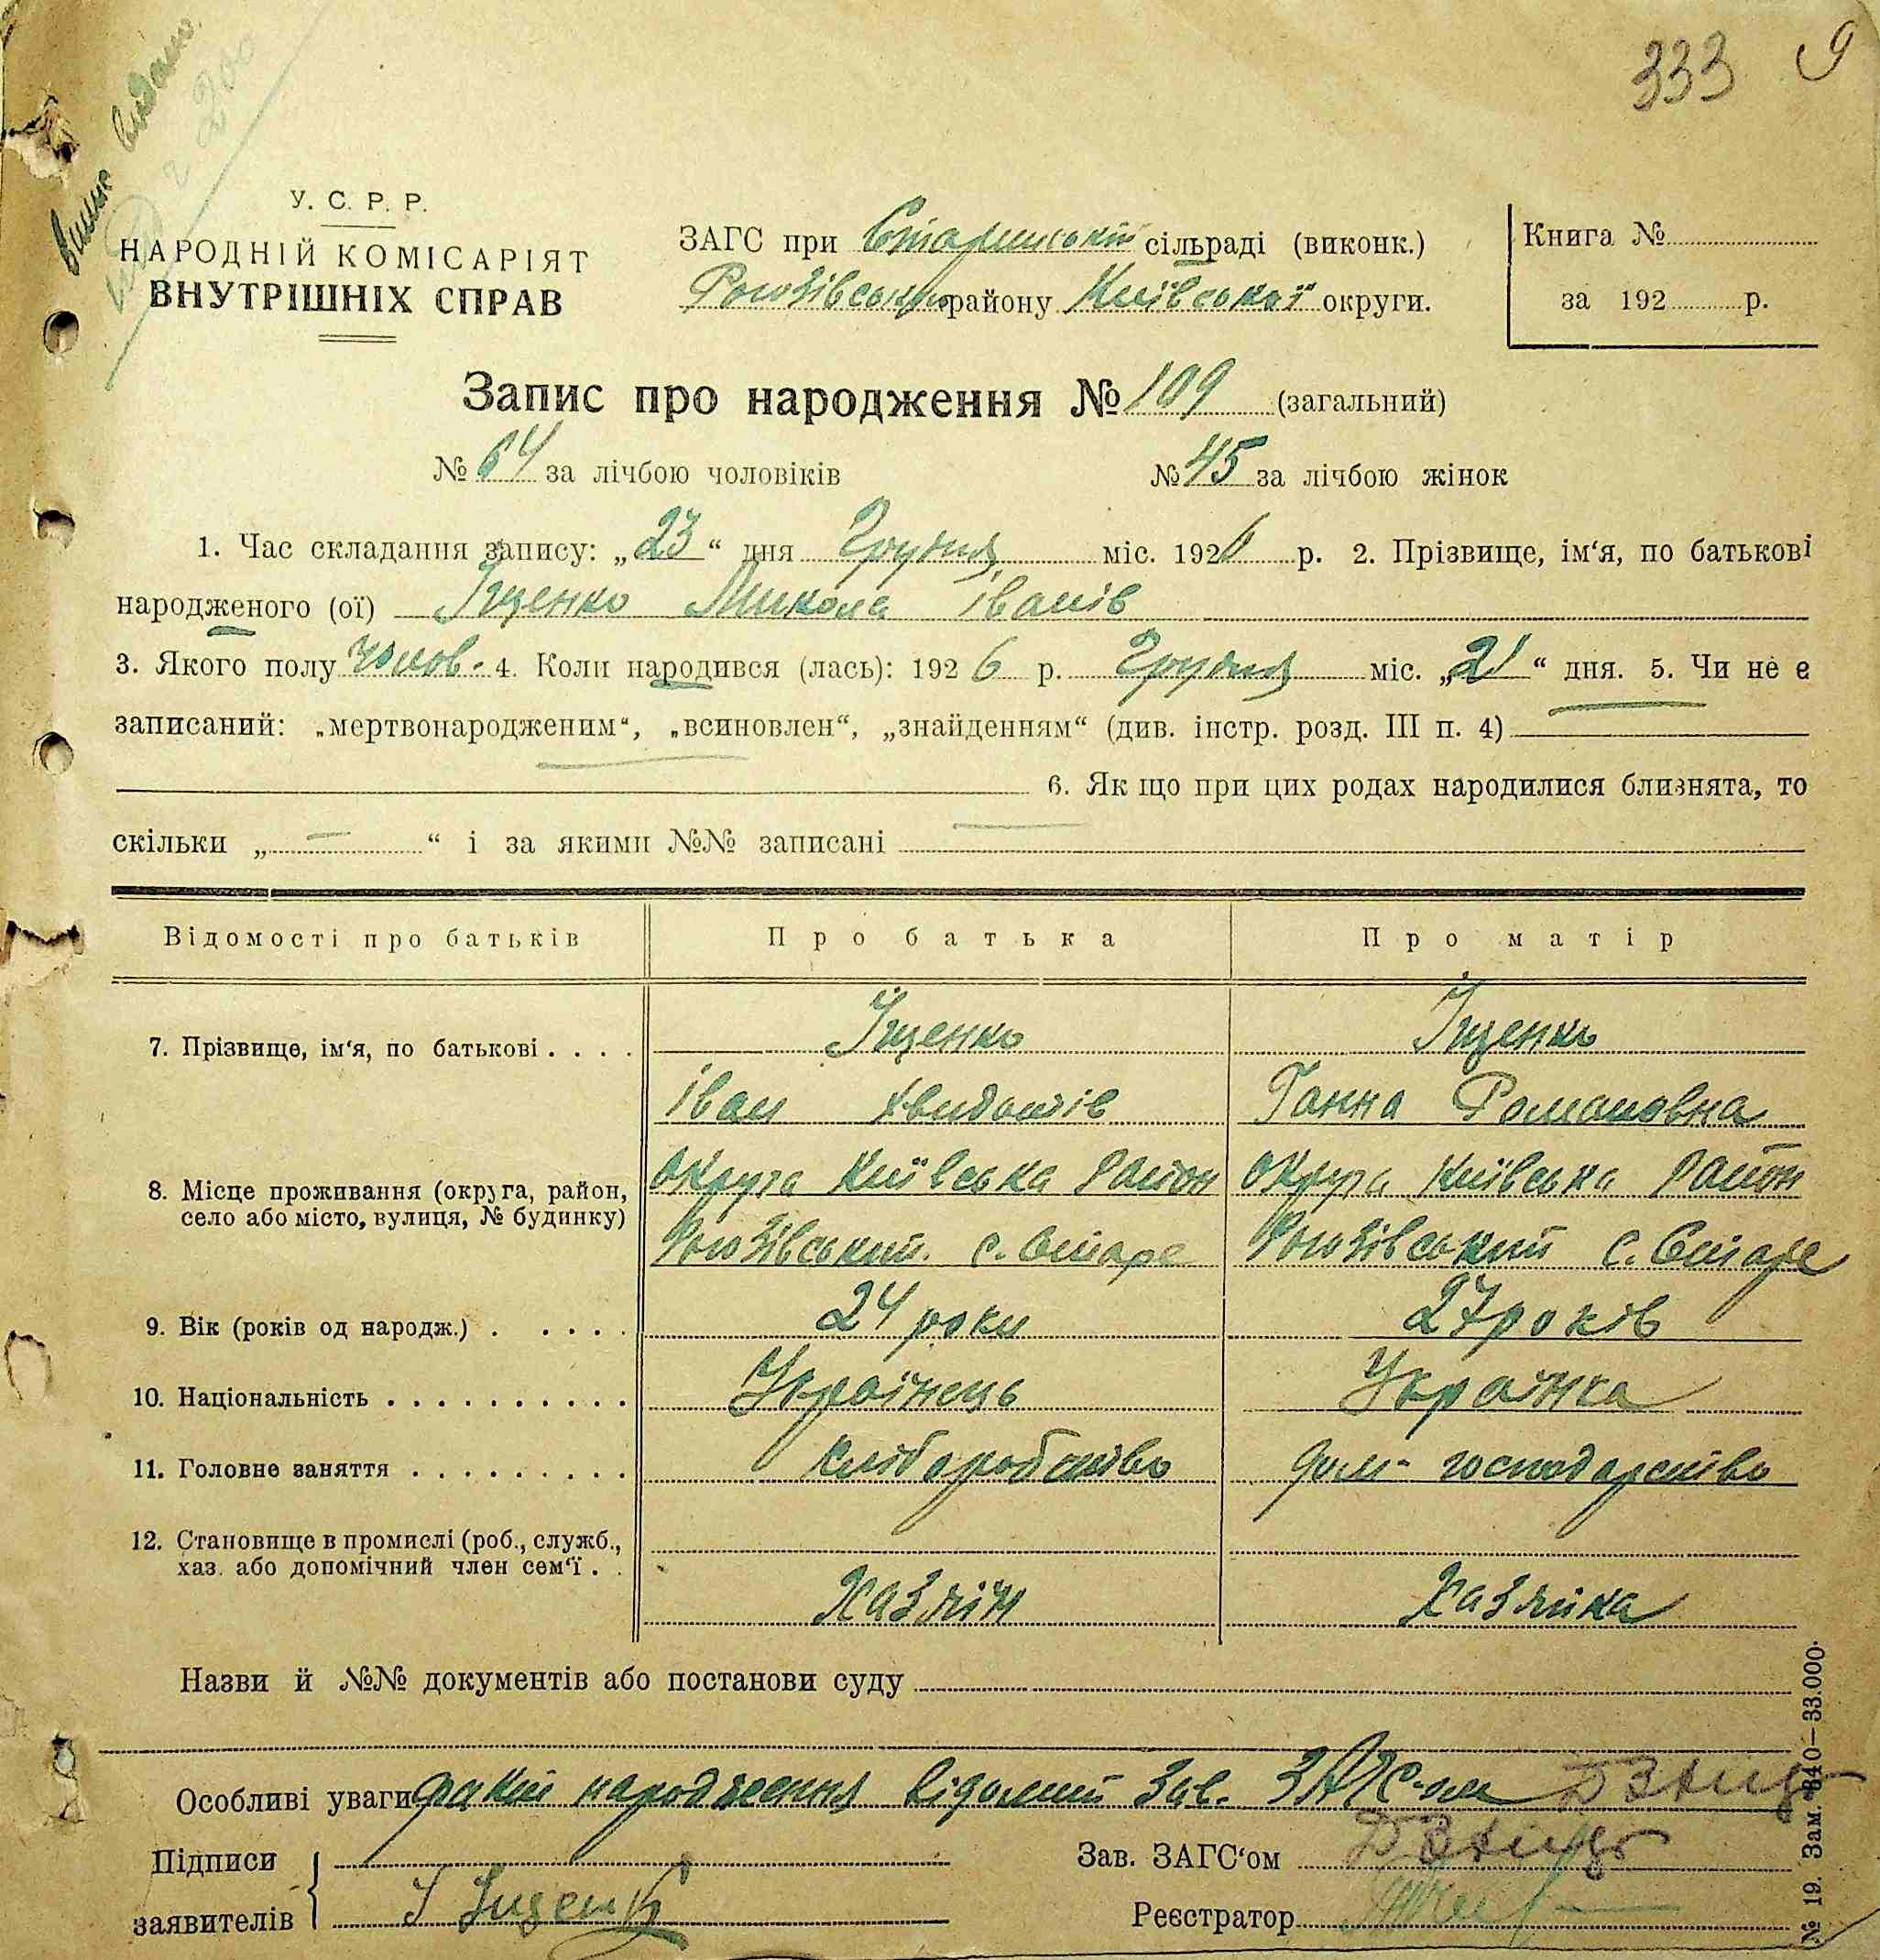 333 9
У. С. Р. Р.
НАРОДНІЙ КОМІСАРІЯТ
ВНУТРІШНІХ СПРАВ
ЗАГС при Старинській сільраді (виконк.)
району Київської округи.
Книга №
за 192 р.
Запис про народження № 109 (загальний)
№ 64 за лічбою чоловіків № 45 за лічбою жінок
1. Час складання запису: „23“ дня Грудня міс. 1926 р. 2. Прізвище, ім‘я, по батькові
народженого (ої) Іценко Микола Іванів
3. Якого полу чолов. 4. Коли народився (лась): 1926 р. Грудня міс. „21“ дня. 5. Чи не є
записаний: „мертвонародженим“, „всиновлен“, „знайденням“ (див. інстр. розд. III п. 4)
6. Як що при цих родах народилися близнята, то
скільки „ — “ і за якими №№ записані
Відомості про батьків Про батька Про матір
7. Прізвище, ім‘я, по батькові . . . . Іценко Іценко
Іван Ганна Романовна
8. Місце проживання (округа, район, село або місто, вулиця, № будинку) Округа Київська Район Округа Київська Район
с. Старе с. Старе
9. Вік (років од народж.) . . . . . 24 роки 27 років
10. Національність . . . . . . . . . . Українець Українка
11. Головне заняття . . . . . . . . . хліборобство дом- господарство
12. Становище в промислі (роб., служб.,
хаз. або допомічний член сем‘ї . . Хазяїн Хазяйка
Назви й №№ документів або постанови суду
Особливі уваги факт народження відомий Зав. ЗАГС-ом
Підписи
заявителів І Іценко
Зав. ЗАГС‘ом
Реєстратор
№ 19. Зам. 840—33.000.